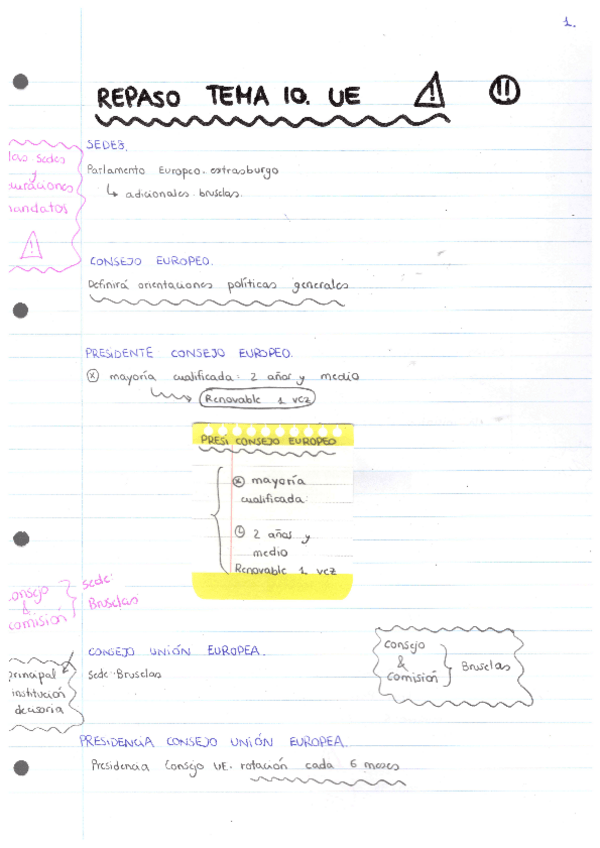 1.
REPASO TEMA 10. UE
SEDES.
Parlamento Europeo. estrasburgo
↳ adicionales. bruselas.
sedes
y
mandatos
CONSEJO EUROPEO.
Definirá orientaciones políticas generales
PRESIDENTE CONSEJO EUROPEO.
mayoría cualificada: 2 años y medio
Renovable 1 vez
PRESI CONSEJO EUROPEO
mayoría
cualificada:
2 años y
medio
Renovable 1 vez
consejo
&
comisión
sede:
Bruselas
CONSEJO UNIÓN EUROPEA.
sede: Bruselas
principal
institución
decisoria
consejo
&
comisión
Bruselas
PRESIDENCIA CONSEJO UNIÓN EUROPEA.
Presidencia Consejo UE. rotación cada 6 meses